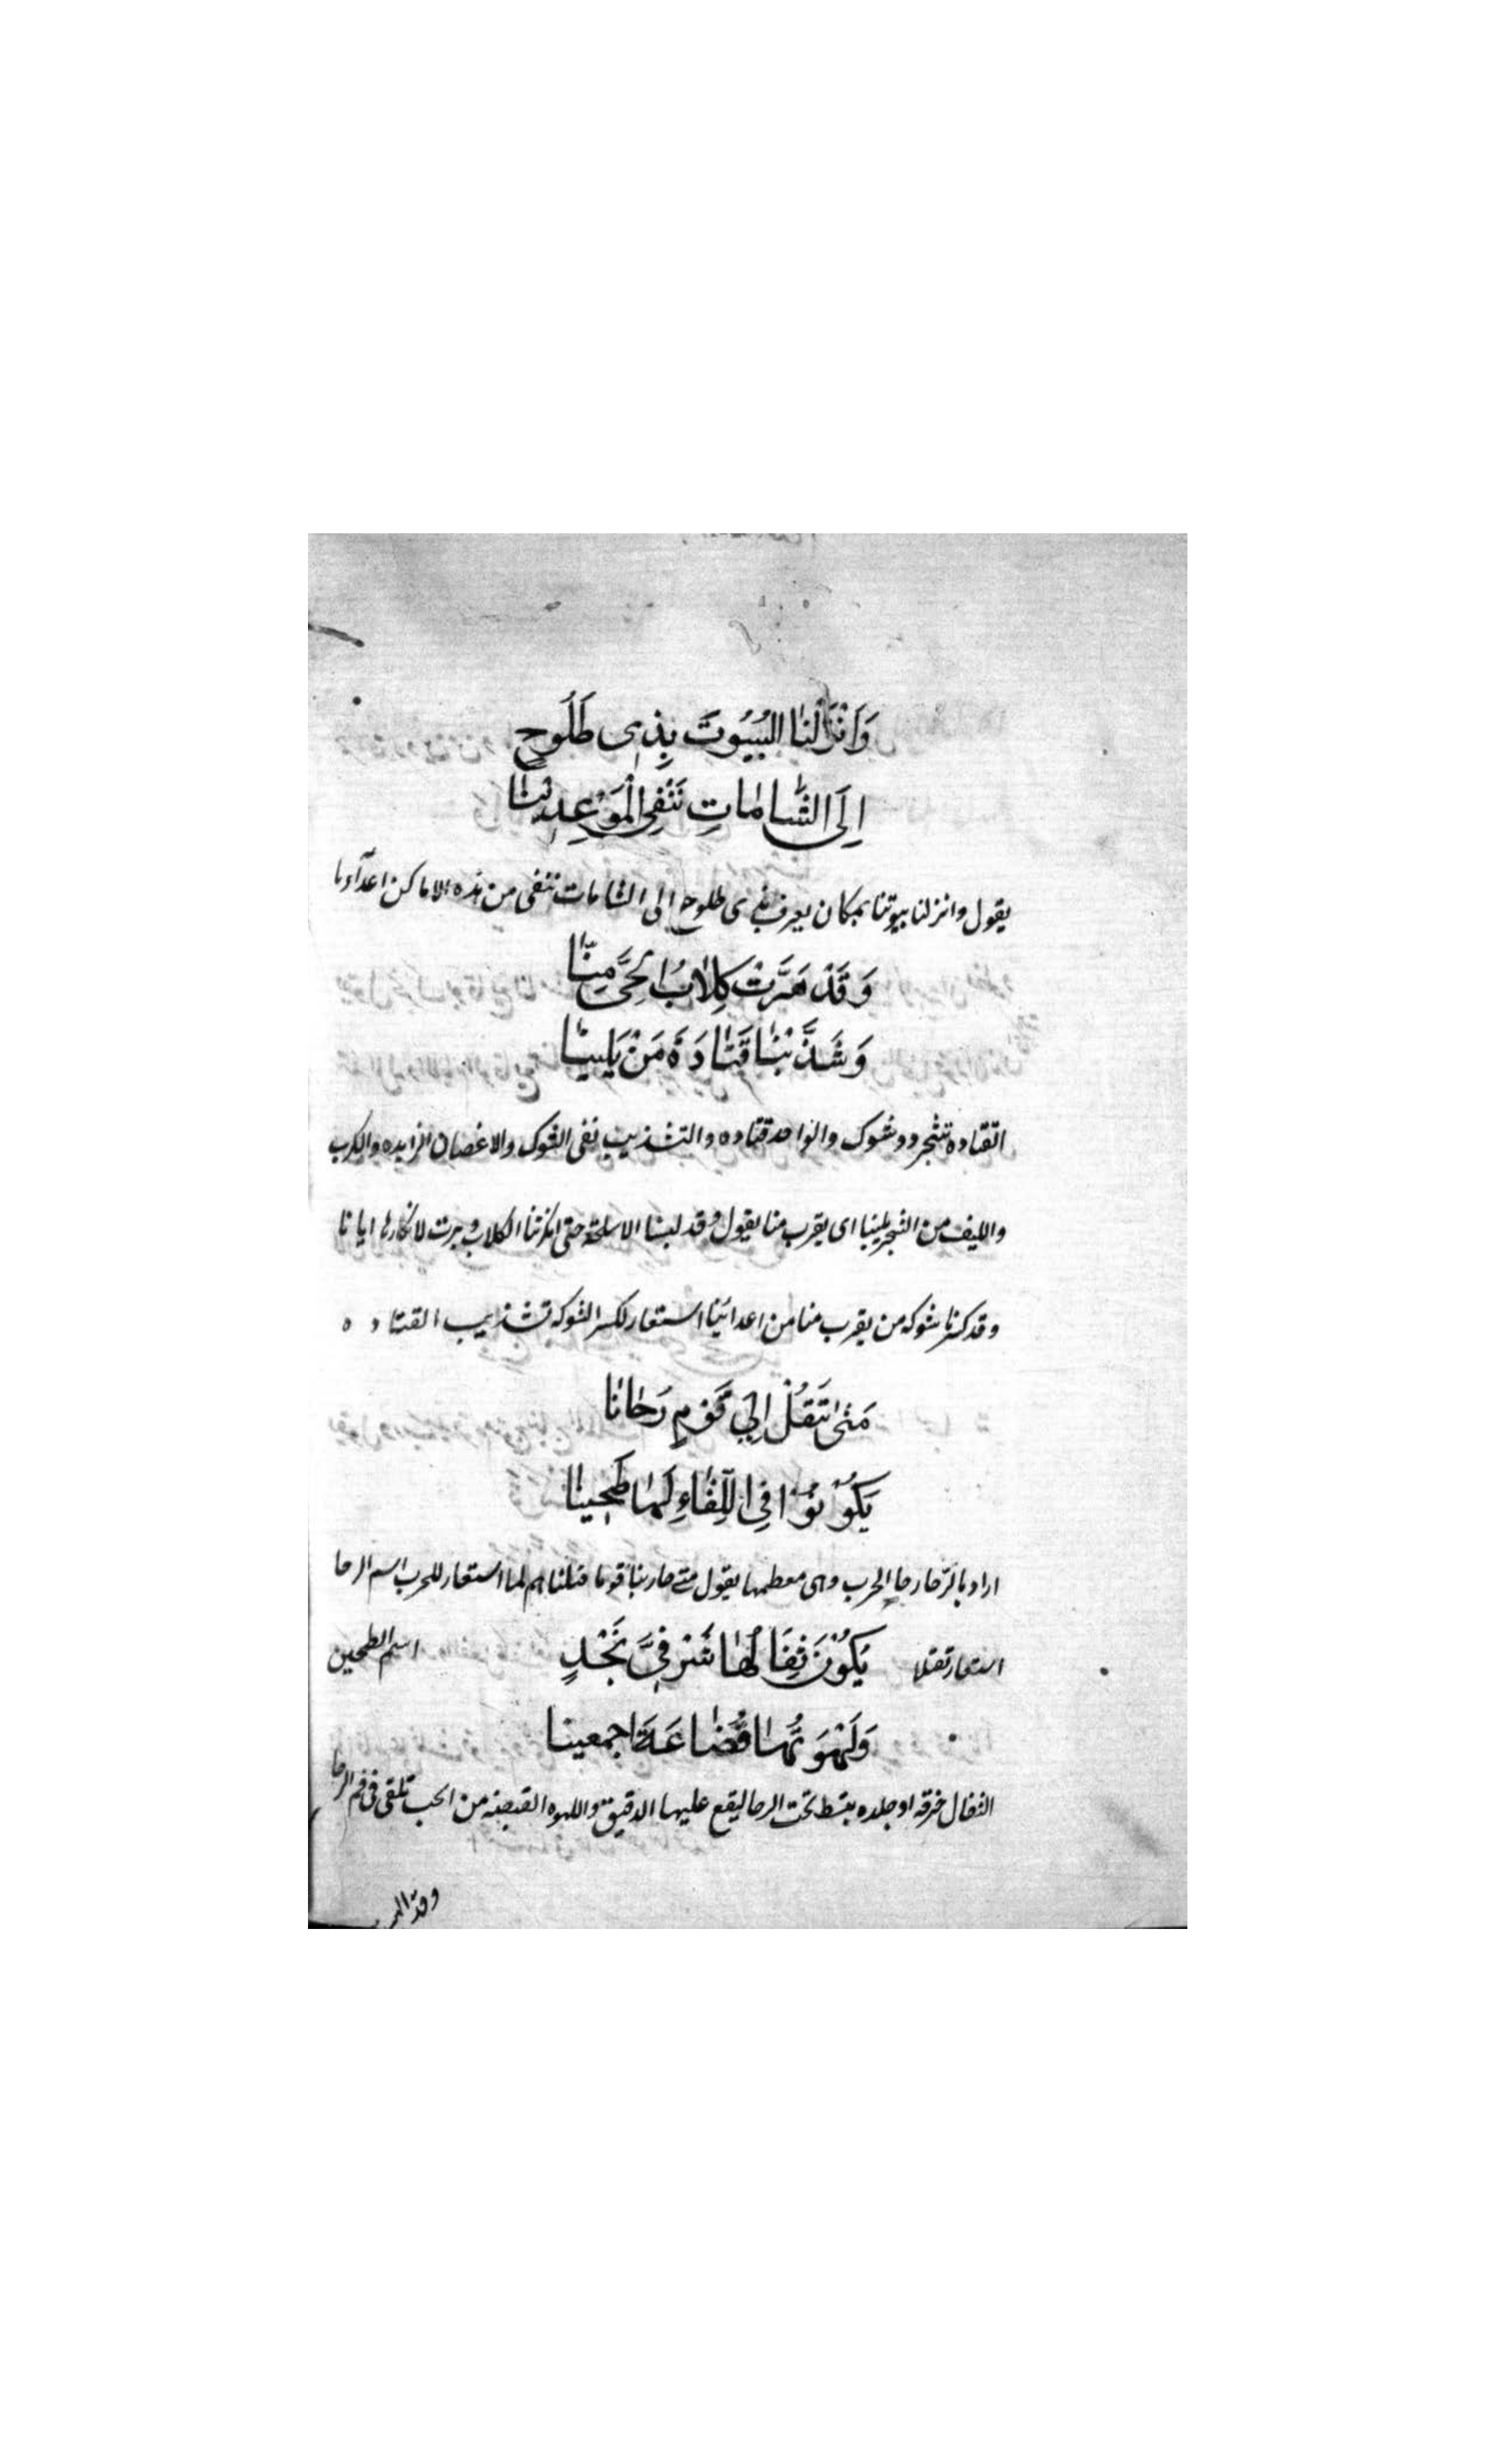 وَاَنْزَلْنَا البُيُوتَ بِذِى طَلُوحٍ
اِلَى الشَّامَاتِ نَنْفِى الْمَوْعِدِيْنَا
يقول وانزلنا بيوتنا بمكان يعرف بذى طلوح الى الشامات ننفى من هذه الاماكن اعدآءنا
وَقَدْ هَرَّتْ كِلاَبُ الحَىِّ مِنَّا
وَشَذَّبْنَا قَتَادَةَ مَنْ يَلِينَا
القتاده شجر ذو شوك والواحد قتاده والتشذيب نفى الشوك والاغصان الزايده والكرب
والليف من الشجر يلينا اى يقرب منا يقول وقد لبسنا الاسلحة حتى انكرتنا الكلاب وهرت لانكارها ايانا
وقد كسرنا شوكه من يقرب منا من اعدائنا استعار لكسر الشوكه تشذيب القتاده
مَتٰى نَنْقُلْ اِلٰى قَوْمٍ رَحَانَا
يَكُوْنُوْا فِى اللِّقَاءِ لَهَا طَحِينَا
اراد بالرحا رحا الحرب وهى معظمها يقول متى حاربنا قوما قتلناهم لما استعار للحرب اسم الرحا
استعار لقتلا يَكُوْنُ ثِفَالُهَا شَرْقِىَّ نَجْدٍ اسم الطحين
وَلَهْوَتُهَا قُضَاعَةَ اجمعينا
الثفال خرقه او جلده يبسط تحت الرحا ليقع عليها الدقيق واللهوه القبضه من الحب تلقى فى فم الرحا